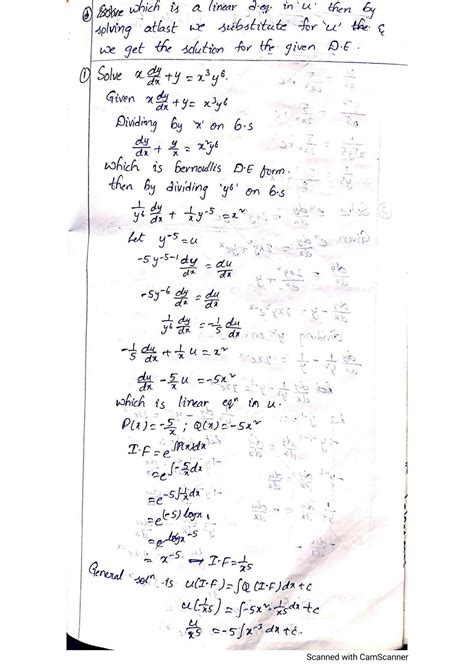 which is a linear d.eq. in 'u' then by
solving atlast we substitute for 'u' the &
we get the solution for the given D.E.
① Solve x dy/dx + y = x³y⁶.
Given x dy/dx + y = x³y⁶
Dividing by 'x' on b.s
dy/dx + y/x = x²y⁶
which is bernoullis D.E form.
then by dividing 'y⁶' on b.s
1/y⁶ dy/dx + 1/x y⁻⁵ = x²
Let y⁻⁵ = u
-5y⁻⁵⁻¹ dy/dx = du/dx
-5y⁻⁶ dy/dx = du/dx
1/y⁶ dy/dx = -1/5 du/dx
-1/5 du/dx + 1/x u = x²
du/dx - 5/x u = -5x²
which is linear eqⁿ in u.
P(x) = -5/x ; Q(x) = -5x²
I.F = e^∫P(x)dx
= e^∫-5/x dx
= e^-5∫1/x dx
= e^(-5) logx
= e^logx⁻⁵
= x⁻⁵ ⇒ I.F = 1/x⁵
General solⁿ is u(I.F) = ∫Q(I.F)dx + c
u(1/x⁵) = ∫-5x² · 1/x⁵ dx + c
u/x⁵ = -5∫x⁻³ dx + c.
Scanned with CamScanner